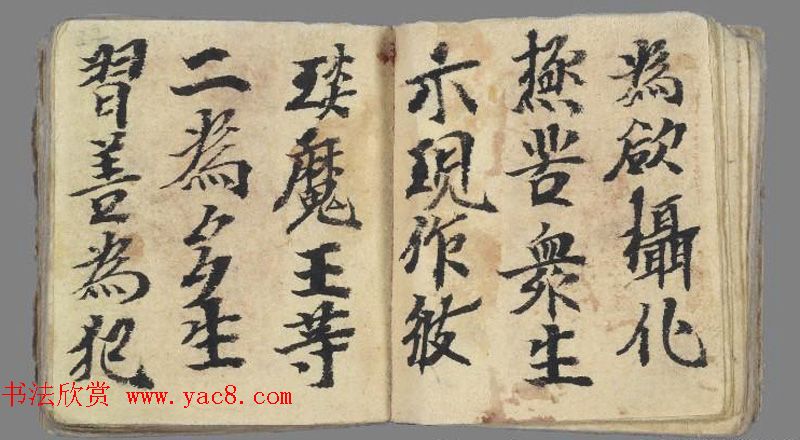 為欲攝化
極苦衆生
示現作彼
琰魔王等
二為多生
習善為犯
书法欣赏 www.yac8.com